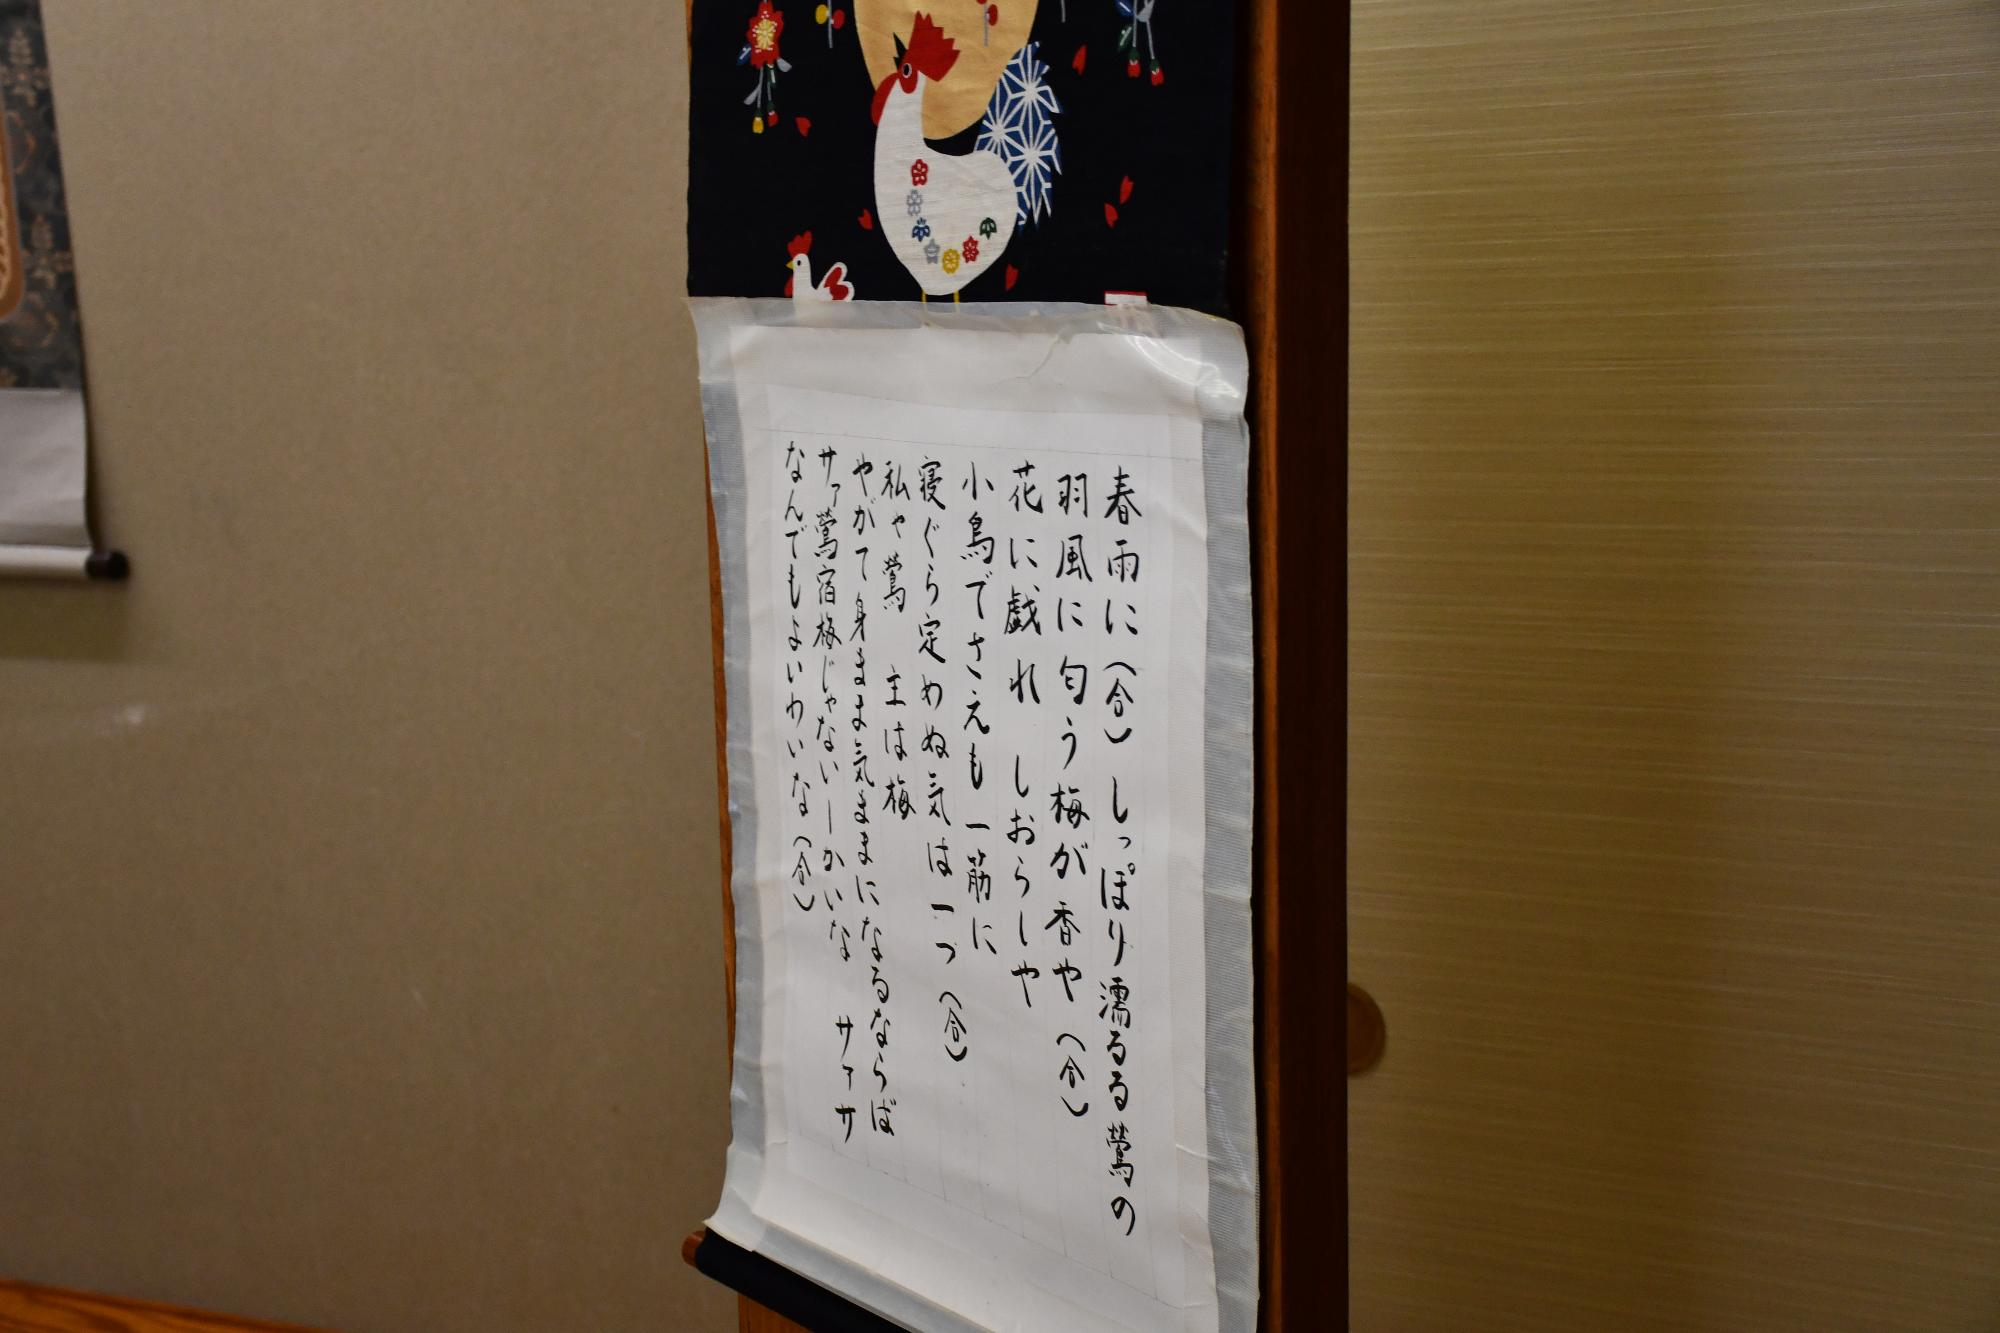 春雨に(合)しっぽり濡るる鶯の
羽風に匂う梅が香や(合)
花に戯れ しおらしや
小鳥でさえも一筋に
寝ぐら定めぬ気は一つ(合)
私ゃ鶯 主は梅
やがて身まま気ままになるならば
サァ鶯宿梅じゃないーかいな サァサ
なんでもよいわいな(合)